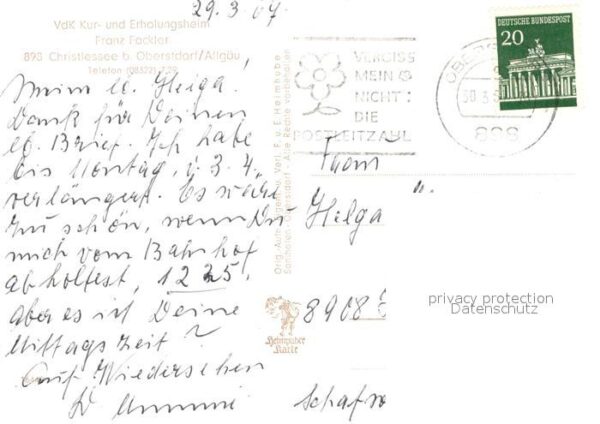 29.3.67.
VdK Kur- und Erholungsheim
Franz Facktor
898 Christlessee b. Oberstdorf/Allgäu
Telefon (08322)
Meine lb. Helga.
Dank für Deinen
lb. Brief. Ich habe
bis Montag, d. 3. 4.
verlängert. Es wäre
zu schön, wenn Du
mich vom Bahnhof
abholtest, 12 25,
aber es ist Deine
Mittagszeit?
Auf Wiedersehen
D. Ammi
Orig. Aufn. Eigent. u. Verl. F. u. E. Heimhuber
Sonthofen-Oberstdorf - Alle Rechte vorbehalten
Heimhuber
Karte
VERGISS
MEIN
NICHT:
DIE
POSTLEITZAHL
OBE
30.3.
898
DEUTSCHE BUNDESPOST
20
Frau
Helga
8908
Schafw
privacy protection
Datenschutz